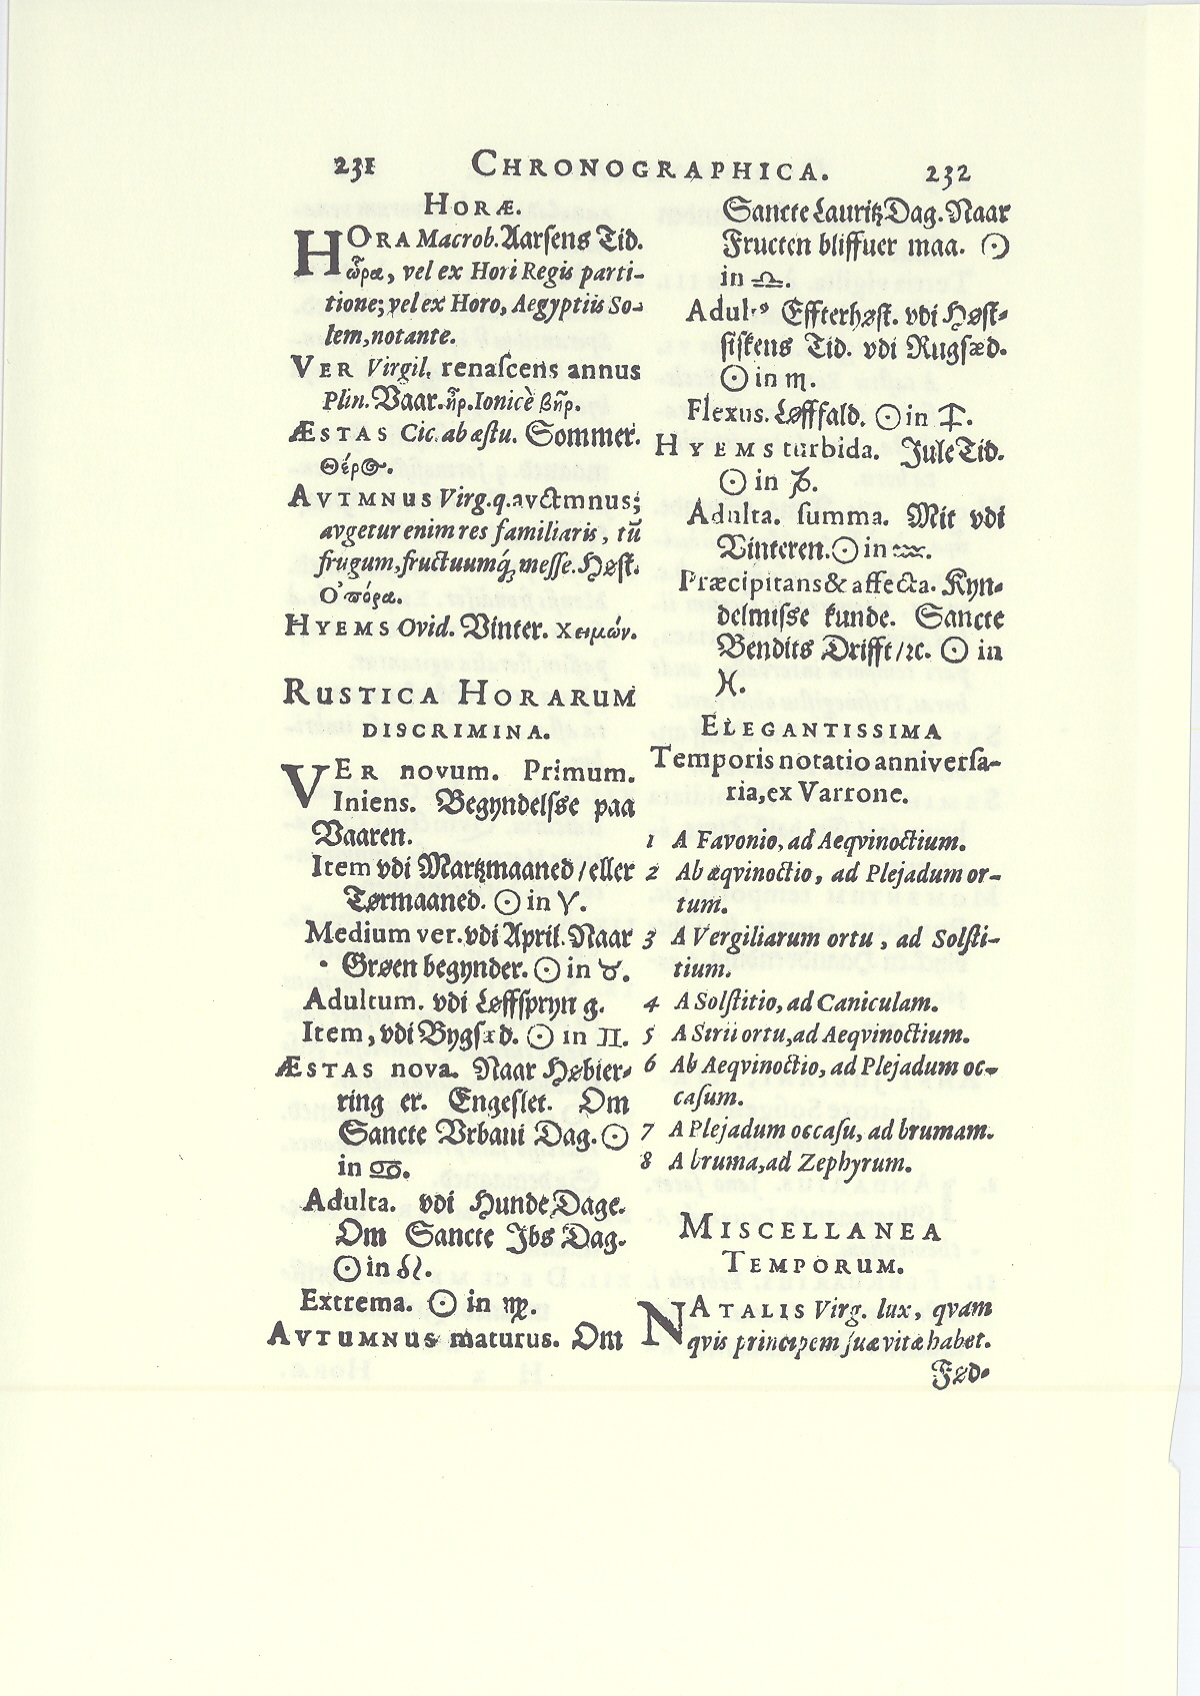 231 CHRONOGRAPHICA. 232
HORÆ.
HORA Macrob. Aarſens Tid.
ὥρα, vel ex Hori Regis parti-
tione; vel ex Horo, Aegyptiis So-
lem, notante.
VER Virgil. renaſcens annus
Plin. Vaar. ἦρ. Ionicè βῆρ.
ÆSTAS Cic. ab æſtu. Sommer.
Θέρος.
AVTMNUS Virg. q. avctmnus;
avgetur enim res familiaris, tū
frugum, fructuumq́; meſſe. Høſt.
Ὀπόρα.
HYEMS Ovid. Vinter. χειμών.
RUSTICA HORARUM
DISCRIMINA.
VER novum. Primum.
Iniens. Begyndelſse paa
Vaaren.
Item vdi Martzmaaned / eller
Tørmaaned. ☉ in ♈.
Medium ver. vdi April. Naar
Grøen begynder. ☉ in ♉.
Adultum. vdi Løffſpryng.
Item, vdi Bygſæd. ☉ in ♊.
ÆSTAS nova. Naar Høbier-
ring er. Engeslet. Om
Sancte Vrbani Dag. ☉
in ♋.
Adulta. vdi Hunde Dage.
Om Sancte Ibs Dag.
☉ in ♌.
Extrema. ☉ in ♍.
AVTUMNUS maturus. Om
Sancte Lauritz Dag. Naar
Fructen bliffuer maa. ☉
in ♎.
Effterhøſt. vdi Høſt-
fiſkens Tid. vdi Rugſæd.
☉ in ♏.
Flexus. Løffald. ☉ in ♐.
HYEMS turbida. Jule Tid.
☉ in ♑.
Adulta. ſumma. Mit vdi
Vinteren. ☉ in ♒.
Præcipitans & affecta. Kyn-
delmiſse kunde. Sancte
Bendits Drifft / ꝛc. ☉ in
♓.
ELEGANTISSIMA
Temporis notatio anniverſa-
ria, ex Varrone.
1 A Favonio, ad Aeqvinoctium.
2 Ab æqvinoctio, ad Plejadum or-
tum.
3 A Vergiliarum ortu, ad Solſti-
tium.
4 A Solſtitio, ad Caniculam.
5 A Sirii ortu, ad Aeqvinoctium.
6 Ab Aeqvinoctio, ad Plejadum oc-
caſum.
7 A Plejadum occaſu, ad brumam.
8 A bruma, ad Zephyrum.
MISCELLANEA
TEMPORUM.
NATALIS Virg. lux, qvam
qvis principem ſuæ vitæ habet.
Fød-